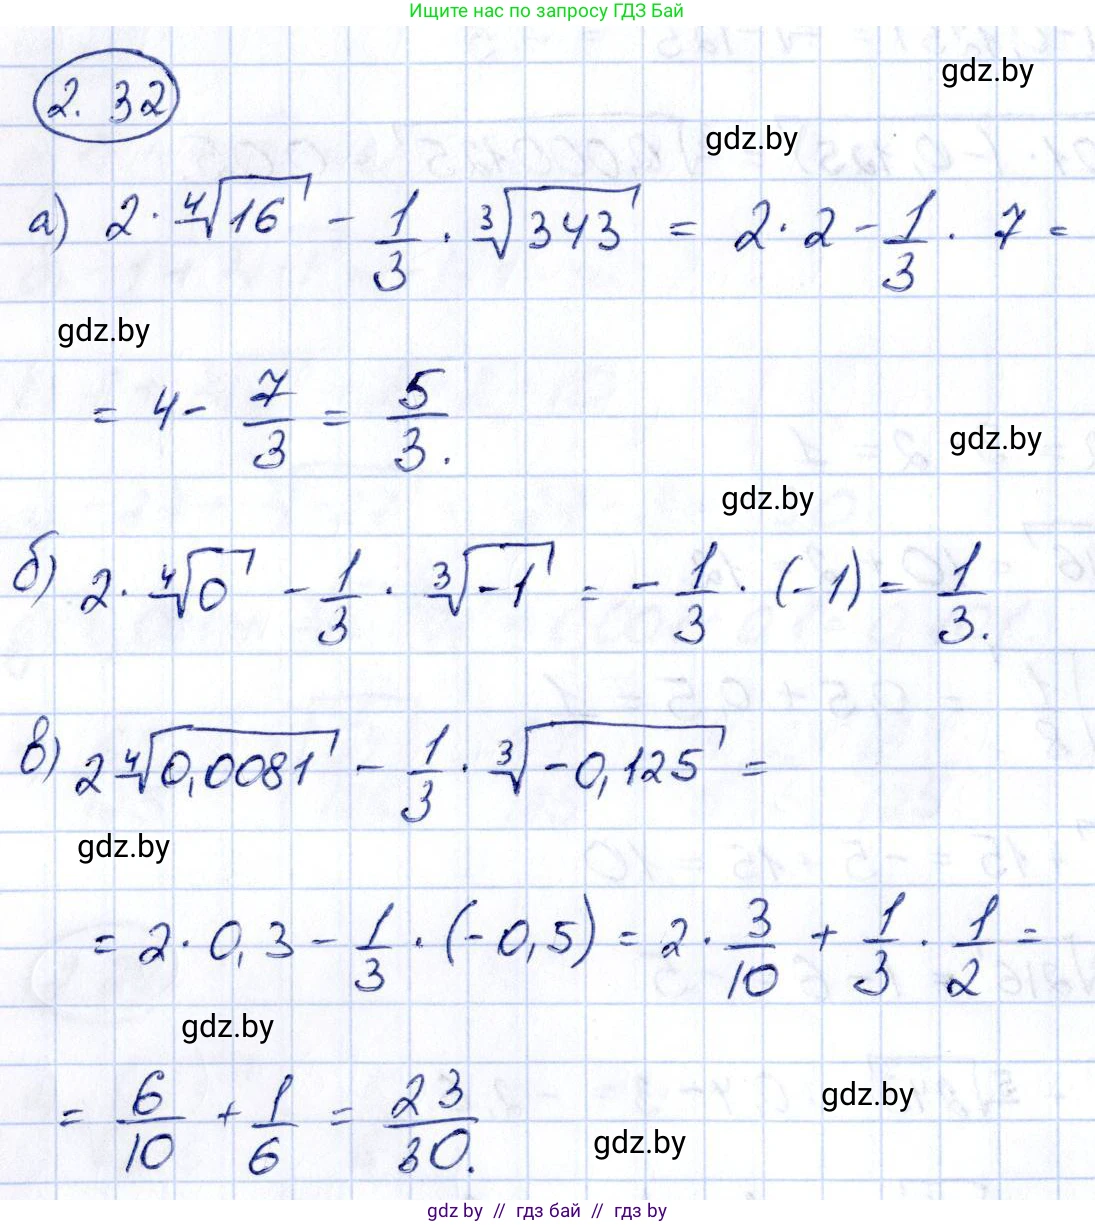 Ищите нас по запросу ГДЗ Бай
2. 32
gdz.by
gdz.by
а) 2 · ∜16 − 1/3 · ∛343 = 2 · 2 − 1/3 · 7 =
gdz.by
= 4 − 7/3 = 5/3.
gdz.by
gdz.by
б) 2 · ∜0 − 1/3 · ∛-1 = − 1/3 · (-1) = 1/3.
в) 2∜0,0081 − 1/3 · ∛-0,125 =
gdz.by
= 2 · 0,3 − 1/3 · (-0,5) = 2 · 3/10 + 1/3 · 1/2 =
gdz.by
= 6/10 + 1/6 = 23/30.
gdz.by
gdz.by
gdz by // гдз бай // гдз by